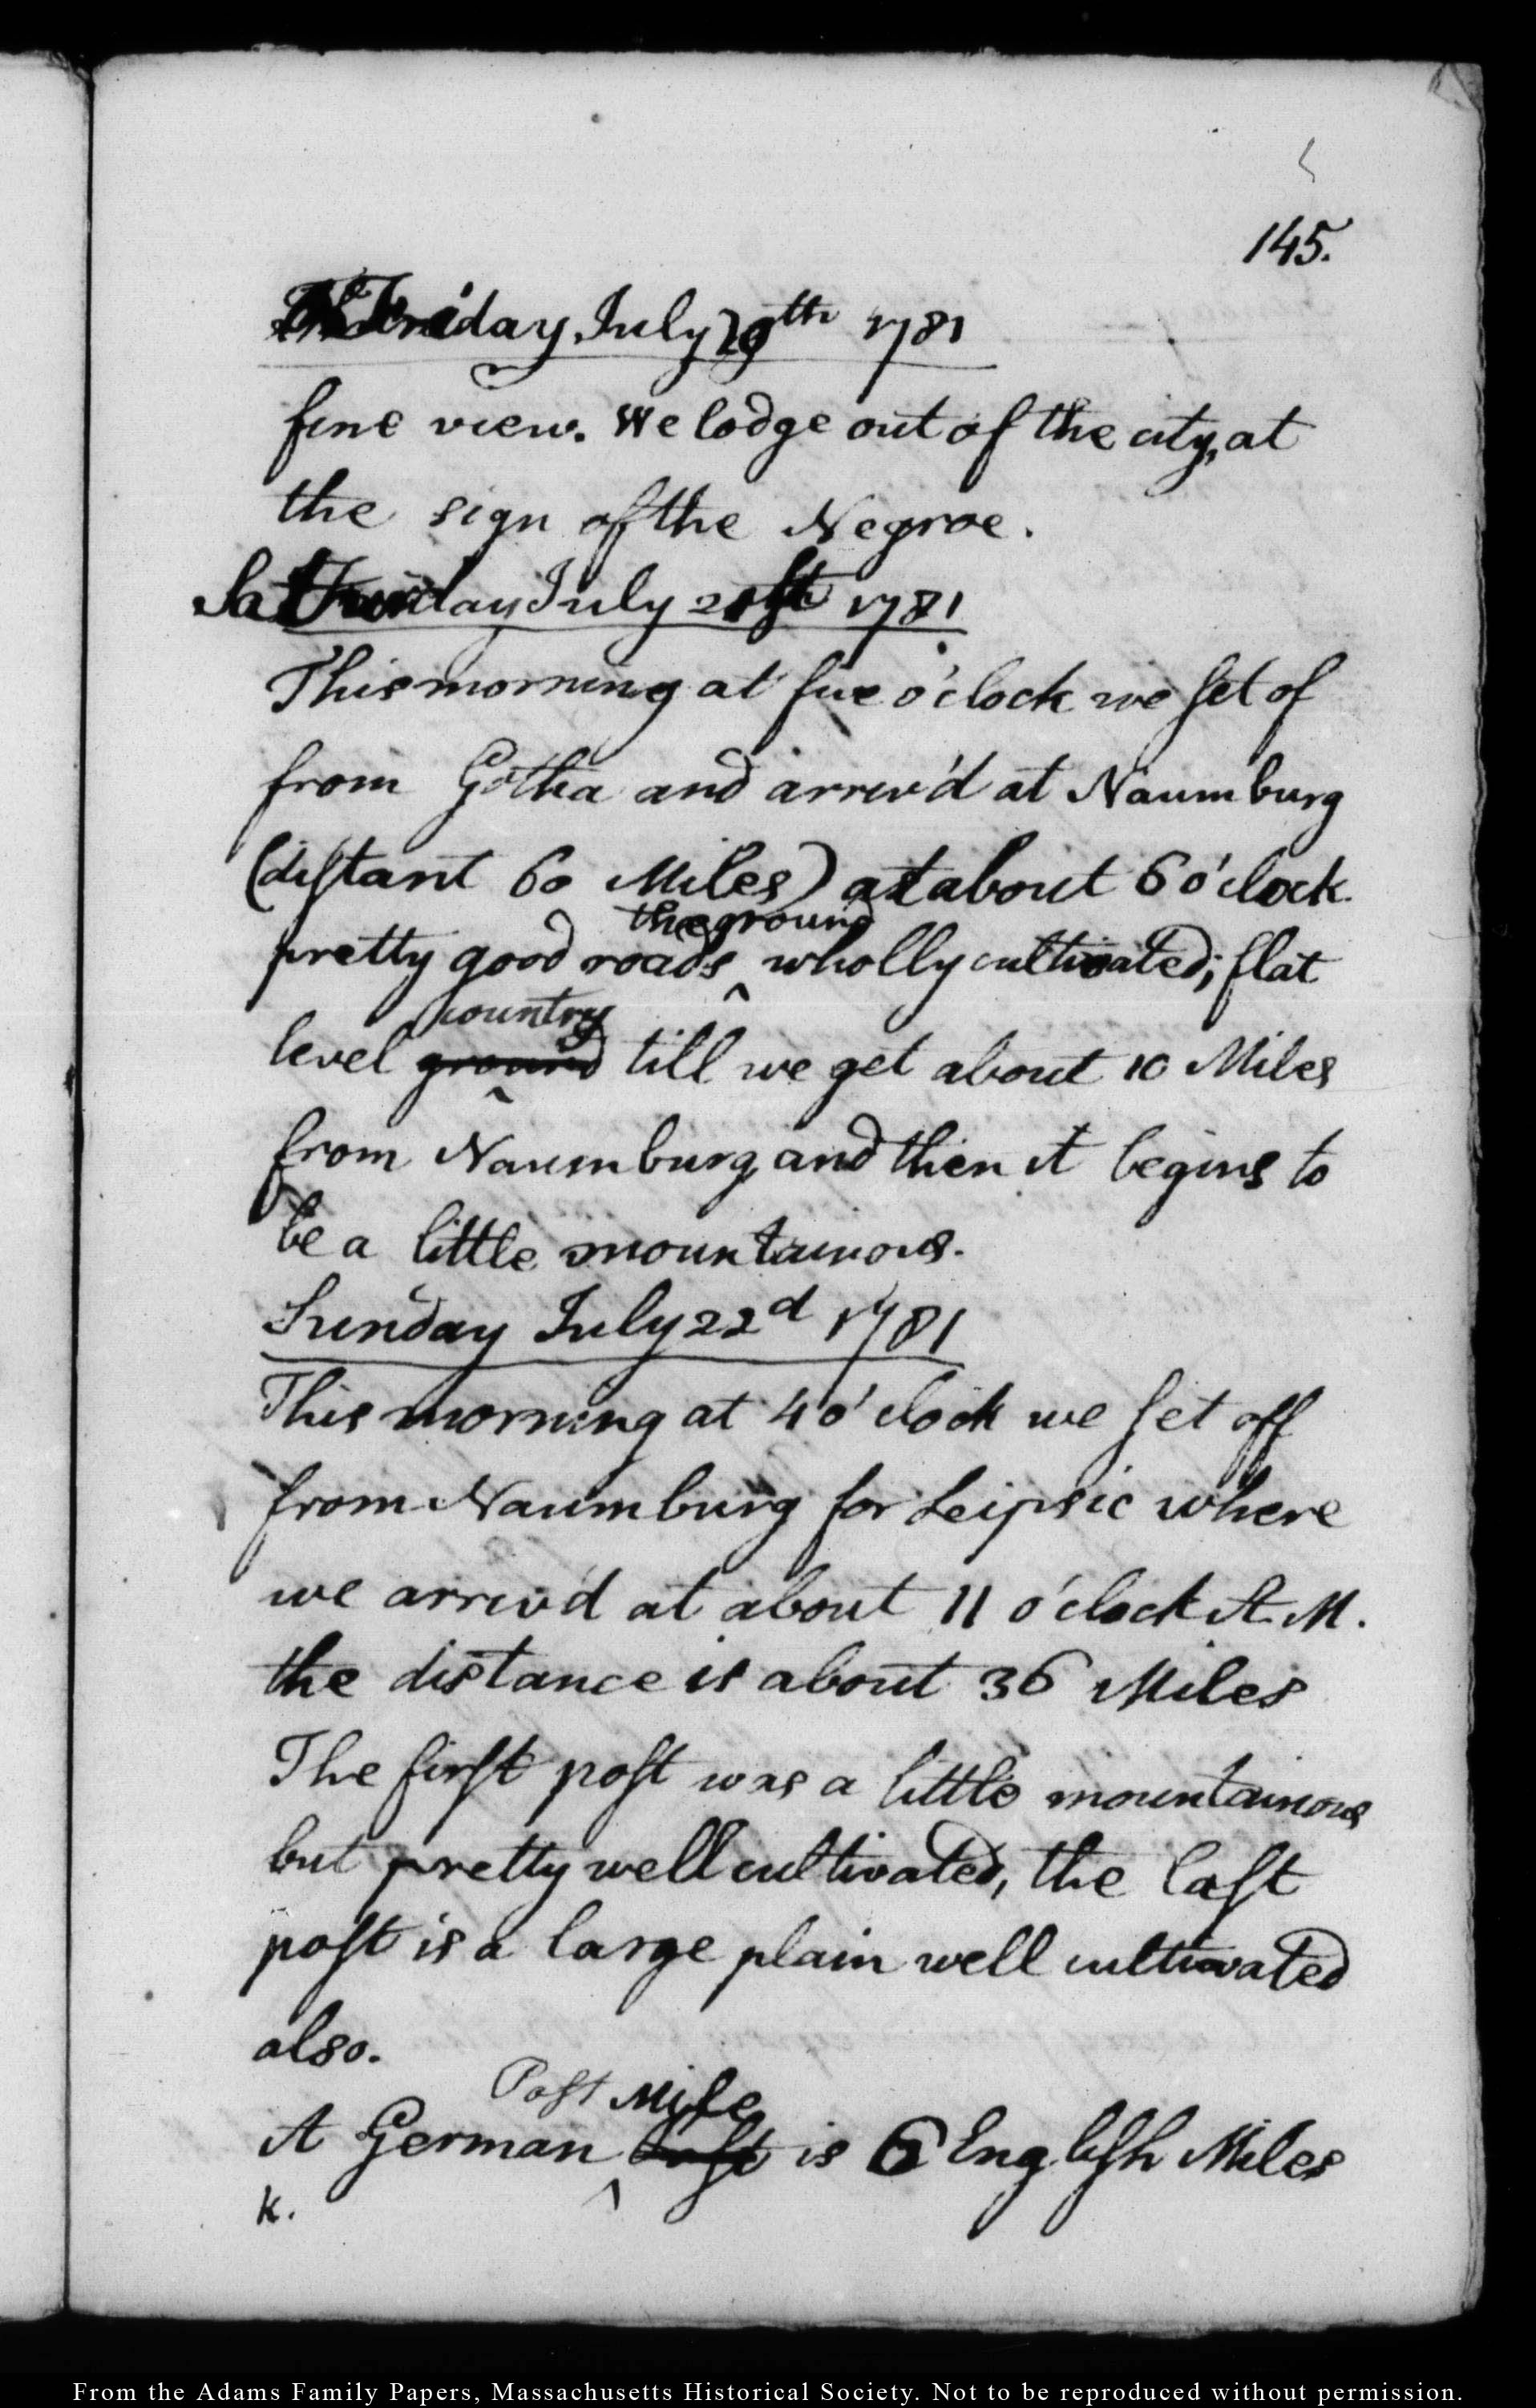 145.
Friday July 20th 1781
fine view. We lodge out of the city, at
the sign of the Negroe.
Saturday July 21st 1781
This morning at five o'clock we set of
from Gotha and arriv'd at Naumburg
(distant 60 Miles) at about 6 o'clock
the ground
pretty good roads ^ wholly cultivated; flat
country
level ground till we get about 10 Miles
from Naumburg, and then it begins to
be a little mountainous.
Sunday July 22d 1781
This morning at 4 o'clock we set off
from Naumburg for Leipsic where
we arriv'd at about 11 o'clock A.M.
the distance is about 36 Miles
The first post was a little mountainous
but pretty well cultivated, the last
post is a large plain well cultivated
also.
Post Mile
A German ^ is 6 English Miles
k.
From the Adams Family Papers, Massachusetts Historical Society. Not to be reproduced without permission.